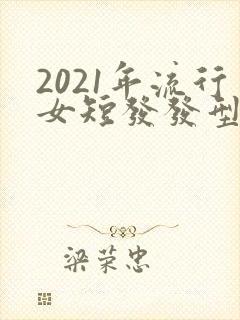 2021年流行
女短發發型
梁荣忠